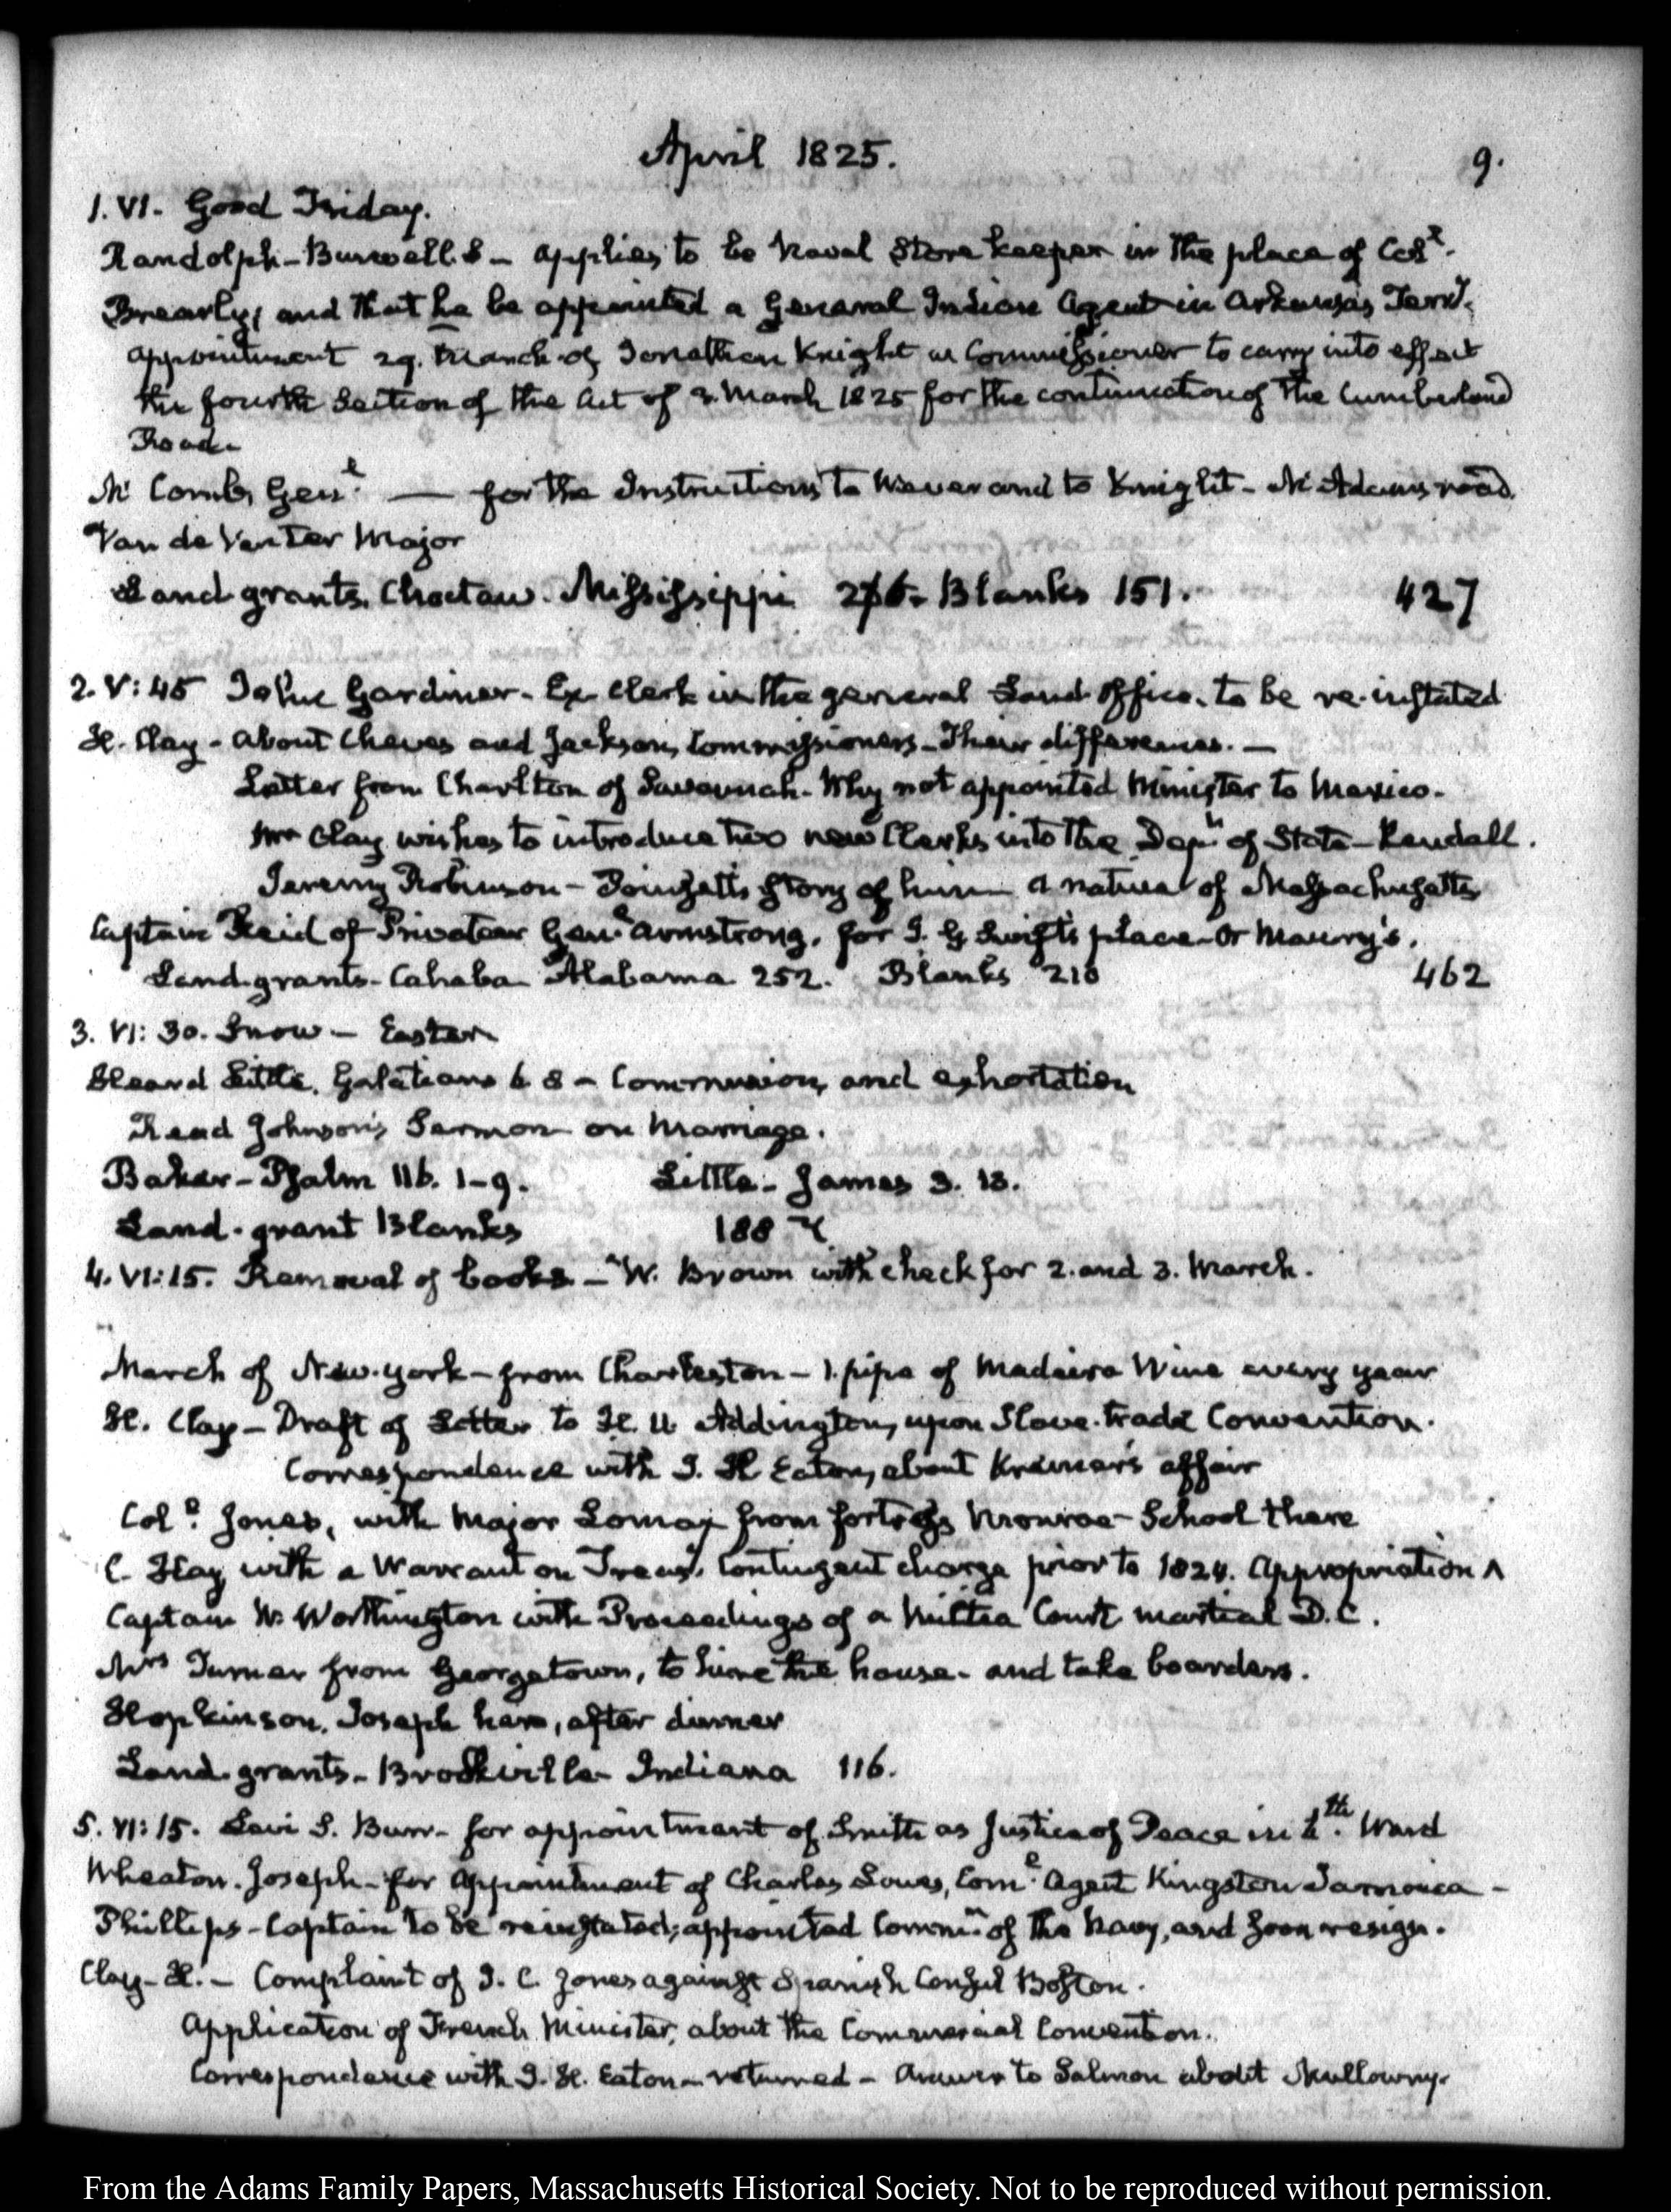 April 1825.
9.
1. VI. Good Friday.
Randolph - Burwell S - applies to be Naval Store keeper in the place of Coll.
Brearly, and that he be appointed a General Indian Agent in Arkansas Terry.
appointment 29. March of Jonathan Knight as Commissioner to carry into effect
the fourth Section of the Act of 3. March 1825 for the continuation of the Cumberland
Road.
McComb, Genl. — for the Instructions to Wever and to Knight - McAdams road.
Van de Venter Major
Land grants. Choctaw. Mississippi 276 - Blanks 151. 427
2. V: 45 John Gardiner - Ex Clerk in the general Land Office, to be re-instated
H. Clay - about Cheves and Jackson, Commissioners - Their differences. —
Letter from Charlton of Savannah - Why not appointed Minister to Mexico.
Mr Clay wishes to introduce two new Clerks into the Dept. of State - Kendall.
Jeremy Robinson - Poinsett's story of him a native of Massachusetts
Captain Reid of Privateer Genl. Armstrong, for J. G. Swift's place - or Maury's.
Land-grants - Cahaba Alabama 252. Blanks 210 462
3. VI: 30. Snow - Easter
Heard Little. Galatians 6 8 - Communion, and exhortation
Read Johnson's Sermon on Marriage.
Baker - Psalm 116. 1-9. Little - James 3. 13.
Land-grant Blanks 188
4. VI: 15. Removal of books - W. Brown with check for 2. and 3. March.
March of New-York - from Charleston - 1. pipe of Madeira Wine every year
H. Clay - Draft of Letter to H. U. Addington, upon Slave-trade Convention.
Correspondence with J. H Eaton, about Kremer's affair
Coll. Jones, with Major Lomax from fortress Monroe - School there
C. Hay with a Warrant on Treasy. Contingent charge prior to 1824. Appropriation ^
Captain W. Worthington with Proceedings of a Militia Court martial D.C.
Mrs Turner from Georgetown, to hire the house - and take boarders.
Hopkinson, Joseph here, after dinner
Land-grants - Brookville Indiana 116.
5. VI: 15. Levi S. Burr - for appointment of Smith as Justice of Peace in th. Ward
Wheaton. Joseph - for Appointment of Charles Coml. Agent Kingston Jamaica -
Phillips - Captain to be reinstated; appointed Commr. of the Navy, and soon resign.
Clay - H. - Complaint of J. C. Jones against Spanish Consul Boston.
Application of French Minister, about the Commercial Convention.
Correspondence with J. H. Eaton - returned - Answer to Salmon about Mullowny.
From the Adams Family Papers, Massachusetts Historical Society. Not to be reproduced without permission.